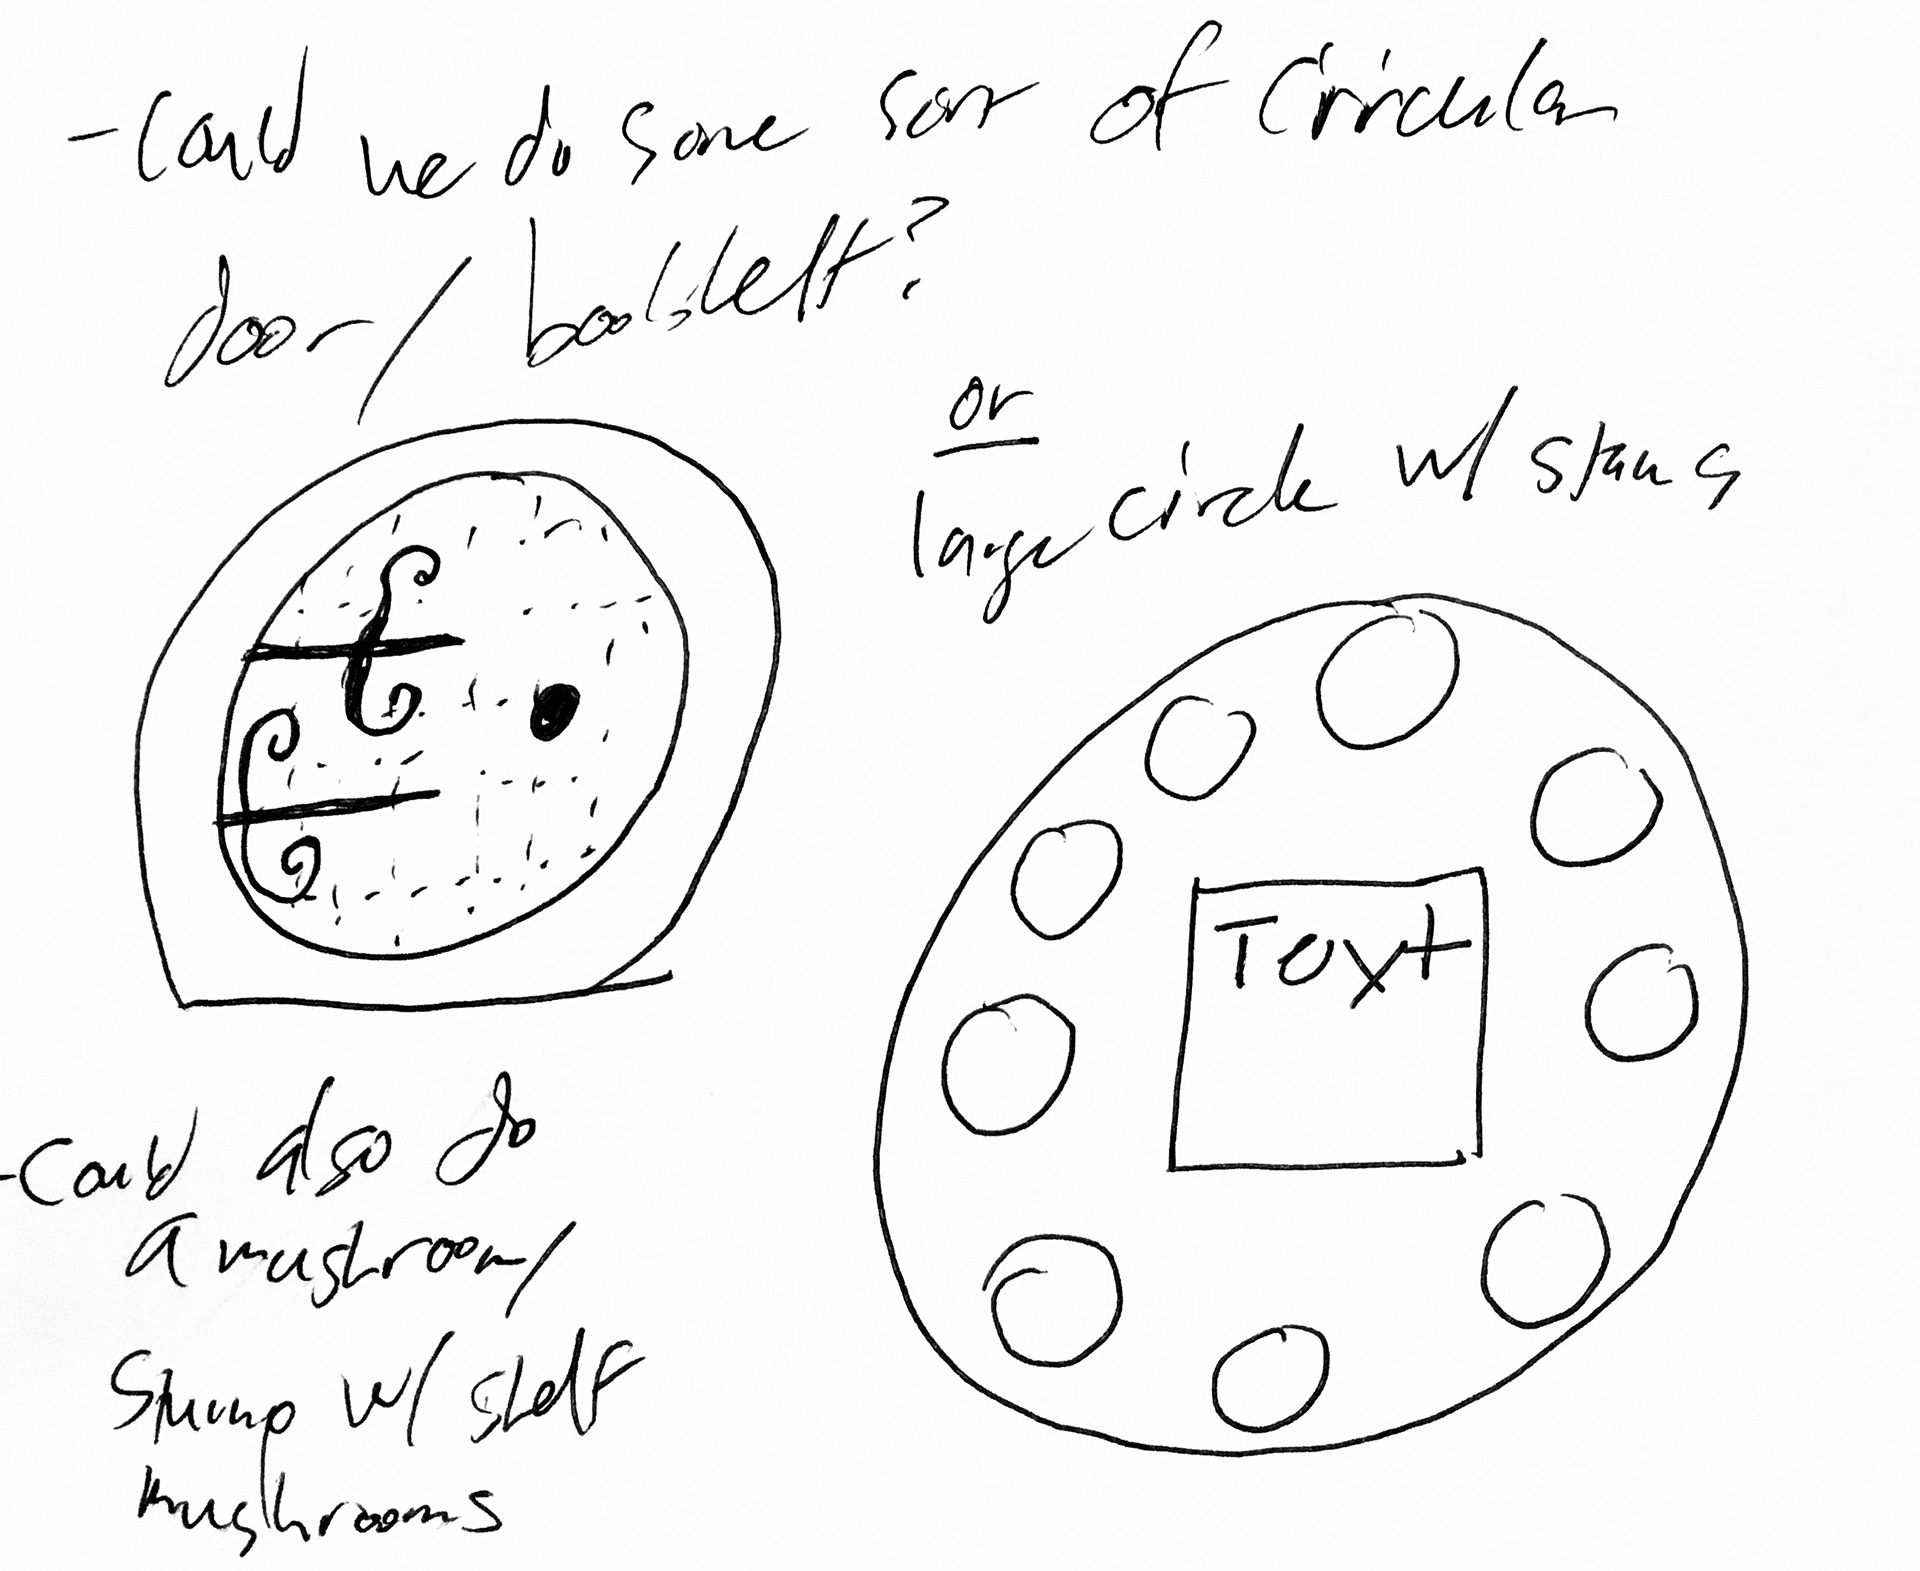 - Could we do some sort of circular
door/ booklett?
or
large circle w/ stairs
Text
- Could also do
a mushroom/
stump w/ shelf
mushrooms